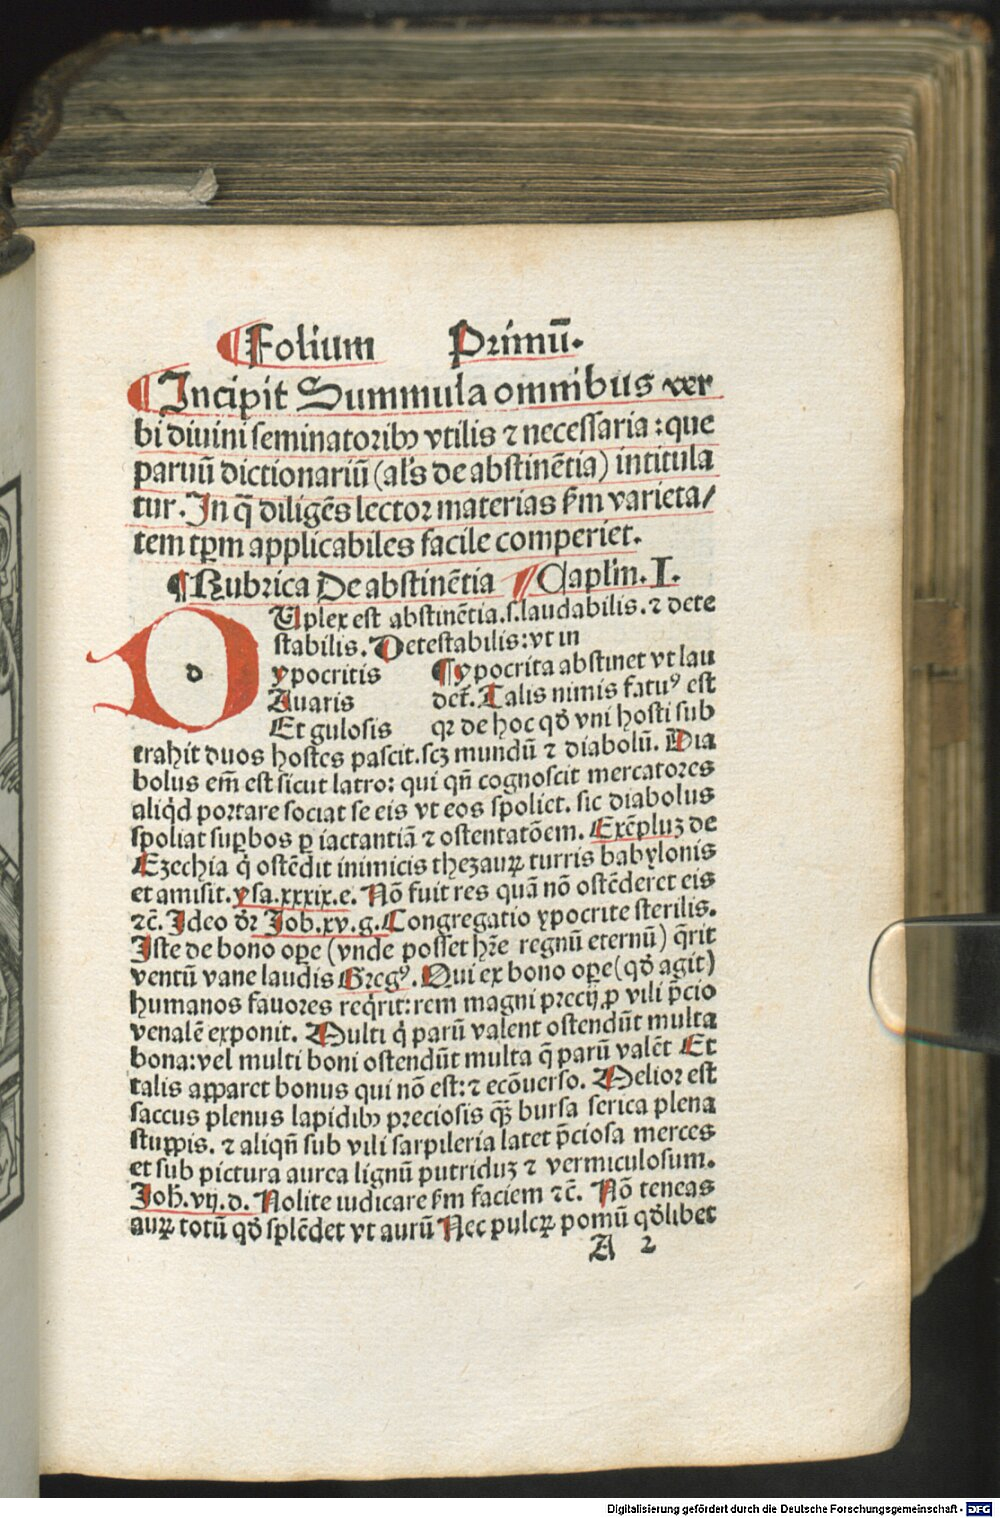 ¶Folium Primū.
¶Incipit Summula omnibus ver
bi diuini seminatoribꝰ vtilis ⁊ necessaria : que
paruū dictionariū (al's de abstinētia) intitula
tur. In q̄ diligēs lector materias fm varieta/
tem tꝑm applicabiles facile comperiet.
¶Rubrica De abstinētia ¶Caplm. I.
d
Uplex est abstinētia. s. laudabilis. ⁊ dete
stabilis. Detestabilis: vt in
ypocritis ¶Ypocrita abstinet vt lau
Auaris det᷑. Talis nimis fatuꝰ est
Et gulosis qꝛ de hoc qď vni hosti sub
trahit duos hostes pascit. scꝫ mundū ⁊ diabolū. Dia
bolus em̄ est sicut latro: qui qn̄ cognoscit mercatores
aliq̇d portare sociat se eis vt eos spoliet. sic diabolus
spoliat suꝑbos ꝑ iactantiā ⁊ ostentatōem. Exēpluꝫ de
Ezechia q̇ ostēdit inimicis thezauꝝ turris babylonis
et amisit. ysa. xxxix. e. Nō fuit res quā nō ostēderet eis
⁊c̄. Ideo dr̄ Job. xv. g. Congregatio ypocrite sterilis.
Iste de bono oꝑe (vnde posset hr̄e regnū eternū) q̄rit
ventū vane laudis Gregꝰ. Qui ex bono oꝑe (qď agit)
humanos fauores req̇rit: rem magni precij ꝑ vili p̄cio
venalē exponit. Multi q̇ parū valent ostendūt multa
bona: vel multi boni ostendūt multa q̄ parū valēt Et
talis apparet bonus qui nō est: ⁊ ecōuerso. Melior est
saccus plenus lapidibꝰ preciosis qꝫ̄ bursa serica plena
stuppis. ⁊ aliqn̄ sub vili sarpileria latet p̄ciosa merces
et sub pictura aurea lignū putriduꝫ ⁊ vermiculosum.
Joh. vij. d. Nolite iudicare fm faciem ⁊c̄. Nō teneas
auꝝ totū qď splēdet vt aurū Nec pulcꝝ pomū qďlibet
A 2
Digitalisierung gefördert durch die Deutsche Forschungsgemeinschaft - DFG